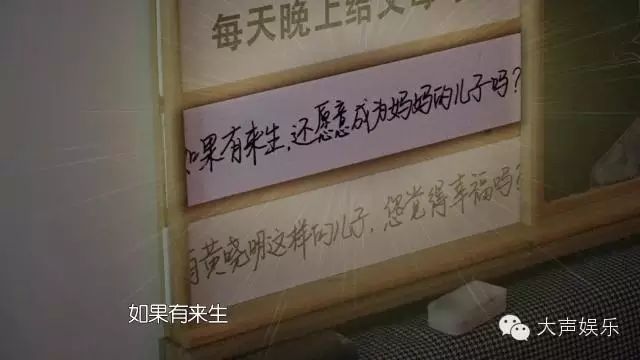 每天晚上给父母
如果有来生,还愿意成为妈妈的儿子吗?
有黄晓明这样的儿子,您觉得幸福吗?
如果有来生
大声娱乐